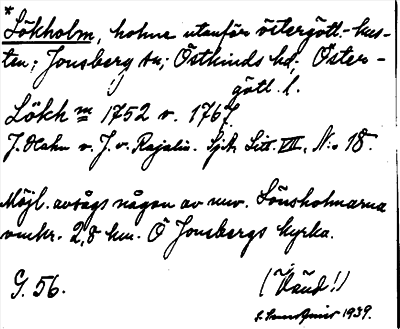 *
Lökholm, holme utanför östergötl.-kus-
ten; Jonsberg sn; Östkinds hd; Öster-
götl. l.
Lökh m 1752 v. 1767.
J. Hahn v. J. v. Rajalin. Sjök. Litt. VII, N:o 18.
Möjl. avsågs någon av nuv. Lönsholmarna
omkr. 2,8 km. Ö Jonsbergs kyrka.
G. 56.
(Vänd!)
1939.